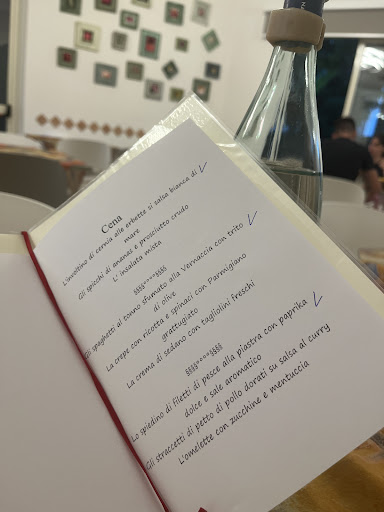 Cena
L'involtino di cernia alle erbette si salsa bianca di
mare
Gli spicchi di ananas e prosciutto crudo
L' insalata mista
§§§§°°°°§§§§
Gli spaghetti al tonno sfumato alla Vernaccia con trito
di olive
La crepe con ricotta e spinaci con Parmigiano
grattugiato
La crema di sedano con tagliolini freschi
§§§§°°°°§§§§
Lo spiedino di filetti di pesce alla piastra con paprika
dolce e sale aromatico
Gli straccetti di petto di pollo dorati su salsa al curry
L'omelette con zucchine e mentuccia